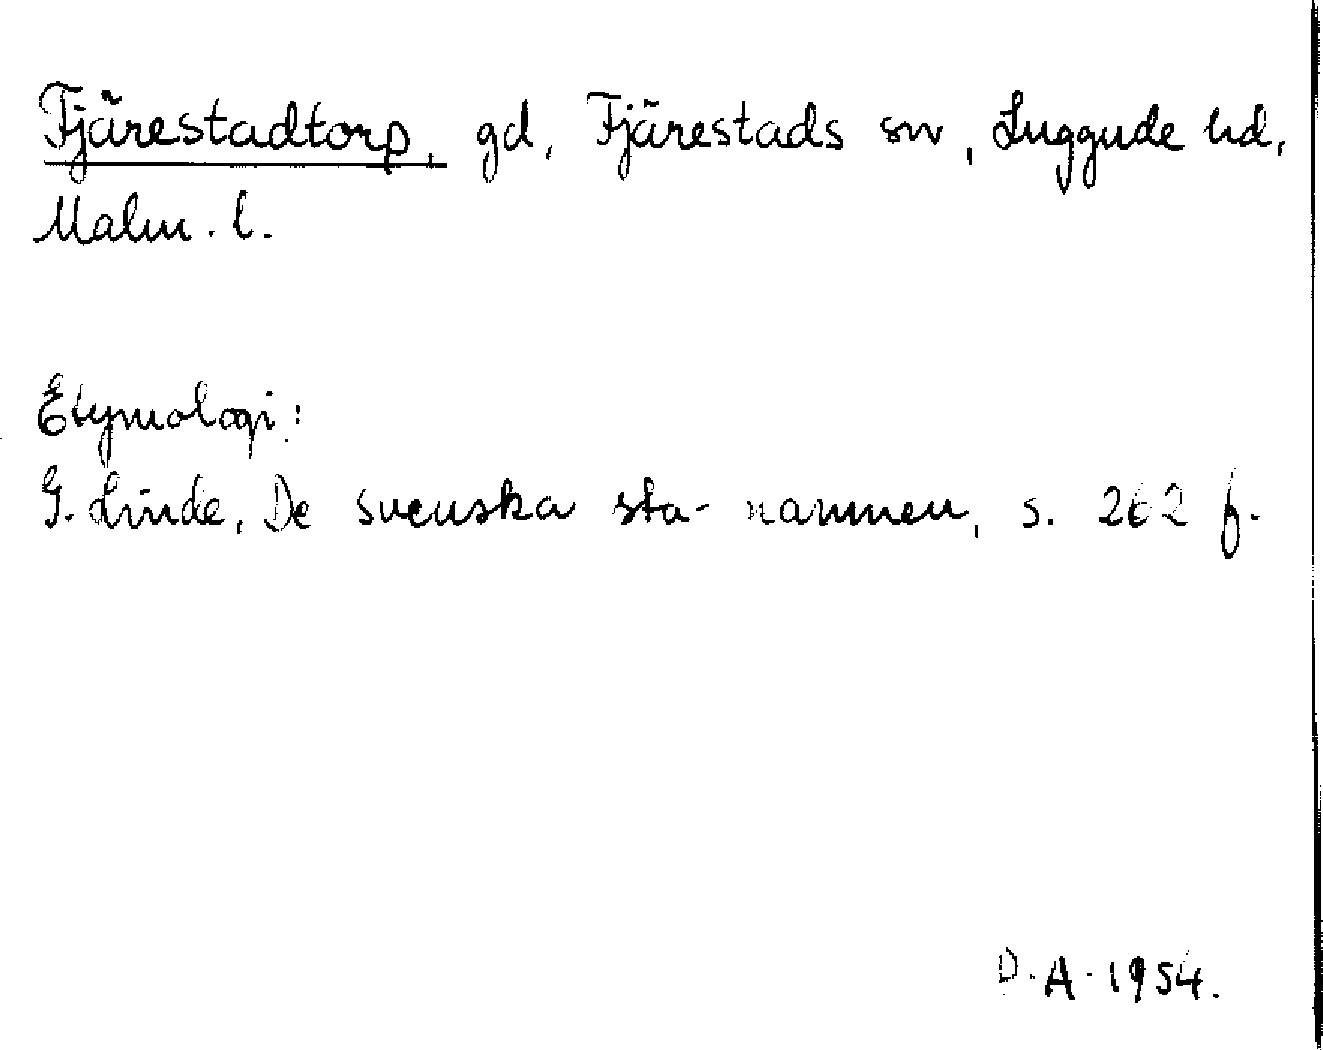 Fjärestadtorp, gd, Fjärestads sn, Luggude hd,
Malm. l.
Etymologi:
G. Linde, De svenska sta-namnen, s. 262 f.
D.A. 1954.